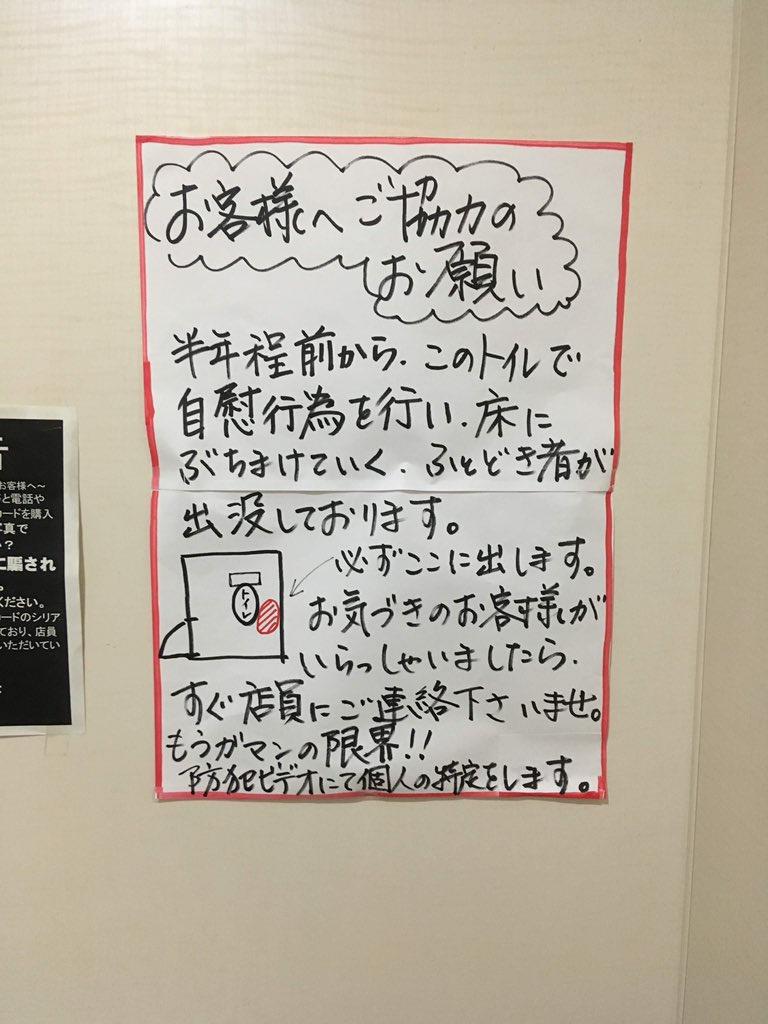 お客様へ ご協力の
お願い
半年程前から、このトイレで
自慰行為を行い、床に
ぶちまけていく、ふとどき者が
出没しております。
必ずここに出します。
トイレ
お気づきのお客様が
いらっしゃいましたら、
すぐ店員にご連絡下さいませ。
もうガマンの限界!!
防犯ビデオにて個人の特定をします。
お客様へ~
と電話や
カードを購入
写真で
か?
に騙され
ください。
カードのシリア
ており、店員
いただいてい